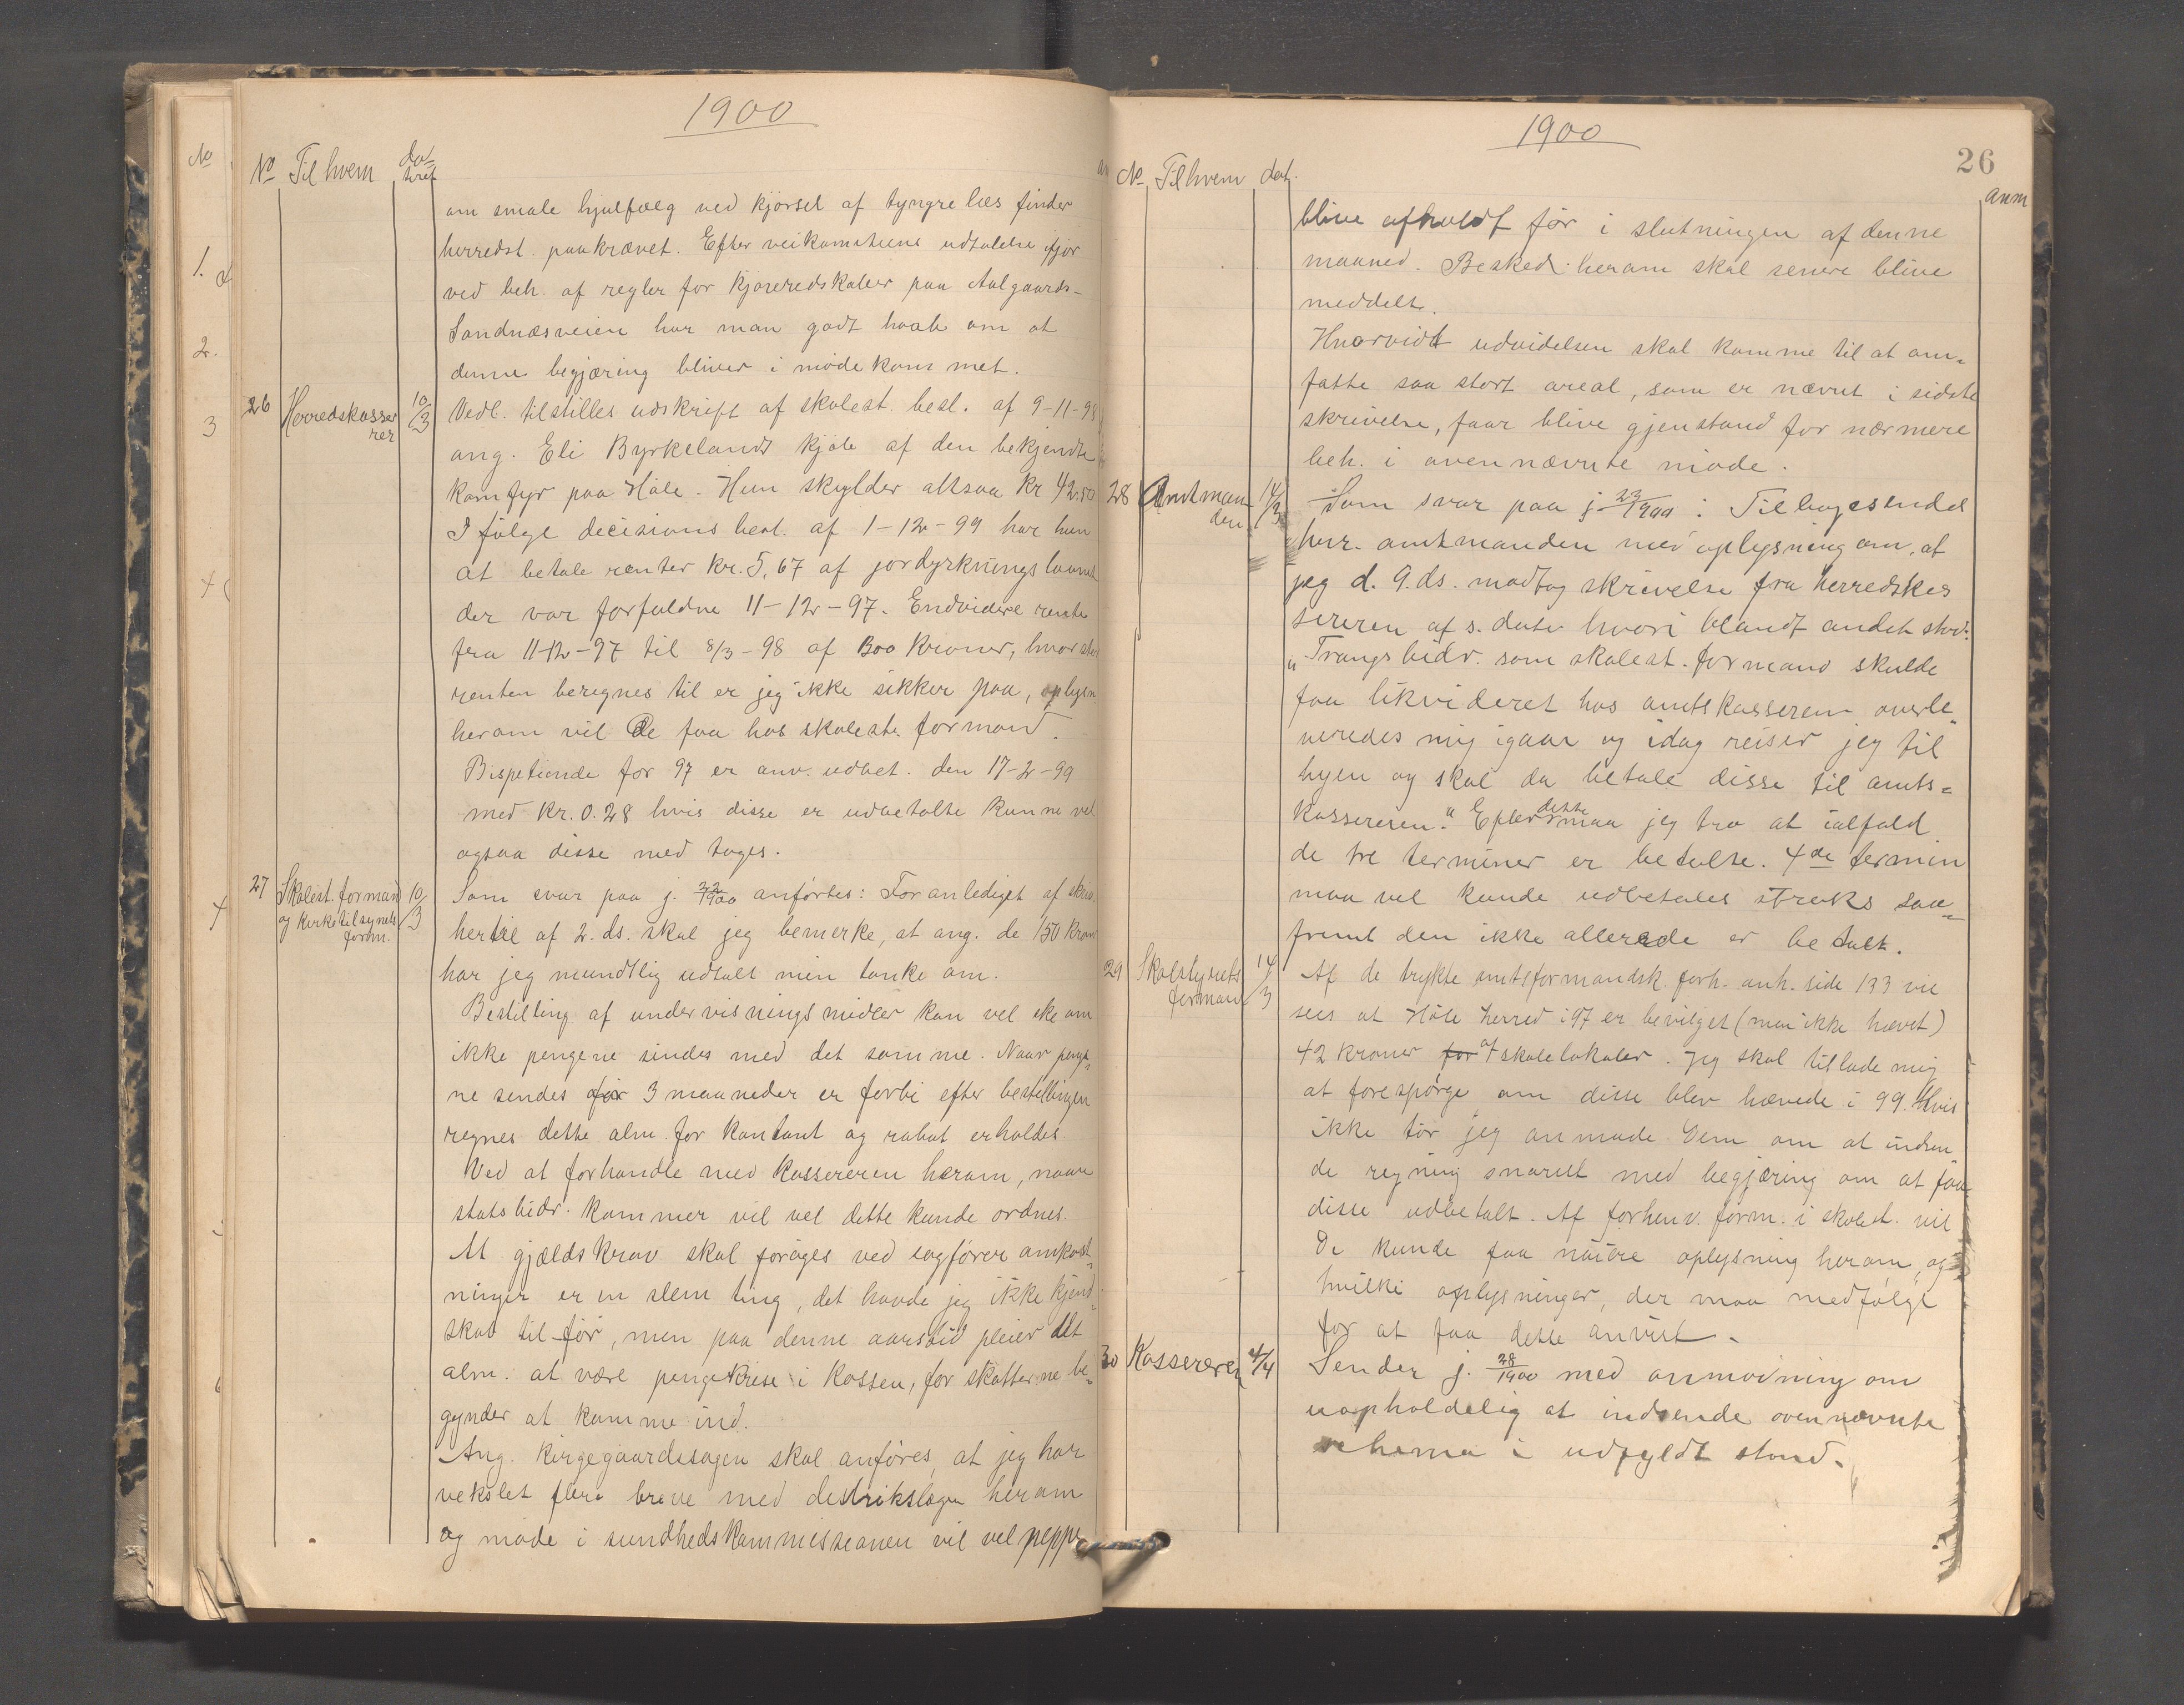 1900
No Til hvem da/teret
om smale hjulfælg ved kjørsel af tyngre læs finder
herredst. paakrævet. Efter veikomiteens udtalelse ifjor
ved beh. af regler for kjøreredskaber paa Aalgaards-
Sandnæsveien har man godt haab om at
denne begjæring bliver i møde kommet.
26 Herredskasserer 10/3 Vedl. tilstilles udskrift af skolest. besl. af 9-11-98
ang. Eli Byrkelands kjøb af den bekjendte
komfyr paa Høle. Hun skylder altsaa Kr 42.50
I følge decisions besl. af 1-12-99 har hun
at betale renter kr. 5,67 af jordyrkningslaanet
der var forfaldne 11-12-97. Endvidere rente
fra 11-12-97 til 8/3-98 af 300 kroner, hvor stor
renten beregnes til er jeg ikke sikker paa, oplysn
herom vil De faa hos skolest. formand.
Bispetiende for 97 er anv. udbet. den 17-2-99
med kr. 0.28 hvis disse er udbetalte kunne vel
ogsaa disse med tages.
27 Skolest. formand og kirketilsynets form. 10/3 Som svar paa j. 22/1900 anførtes: Foranlediget af skriv.
hertil af 2. ds. skal jeg bemerke, at ang. de 150 kron
har jeg mundtlig udtalt min tanke om.
Bestilling af undervisningsmidler kan vel ske om
ikke pengene sendes med det samme. Naar penge-
ne sendes før 3 maaneder er forbi efter bestillingen
regnes dette alm. for kontant og rabat erholdes.
Ved at forhandle med kassereren herom, naar
statsbidr. kommer vil vel dette kunde ordnes.
At gjældskrav skal forøges ved sagfører omkost-
ninger er en slem ting, det havde jeg ikke kjend-
skab til før, men paa denne aarstid pleier det
alm. at være pengekrise i kassen, før skatterne be-
gynder at komme ind.
Ang. kirgegaardssagen skal anføres, at jeg har
vekslet flere breve med distrikslægen herom
og møde i sundhedskommissionen vil vel neppe
1900
26
No Til hvem dat. anm
blive afholdt før i slutningen af denne
maaned. Besked herom skal senere blive
meddelt.
Hvorvidt udvidelsen skal komme til at om-
fatte saa stort areal, som er nævnt i sidste
skrivelse, faar blive gjenstand for nærmere
beh. i ovennævnte møde.
28 Amtmanden 14/3 Som svar paa j. 23/1900: Tilbagesendes
herr. amtmanden med oplysning om, at
jeg d. 9. ds. modtog skrivelse fra herredskas
sereren af s. dato hvori blandt andet stod:
"Trangsbidr. som skolest. formand skulde
faa likvideret hos amtskassereren overle-
veredes mig igaar og idag reiser jeg til
byen og skal da betale disse til amts-
kassereren." Efter dette maa jeg tro at ialfald
de tre terminer er betalte. 4de termin
maa vel kunde udbetales straks saa-
fremt den ikke allerede er betalt.
29 Skolestyrets formand 14/3 Af de trykte amtsformandsk. forh. anh. side 133 vil
sees at Høle herred i 97 er bevilget (men ikke hævet)
42 kroner for af skolelokaler. Jeg skal tillade mig
at forespørge om disse blev hævede i 99. Hvis
ikke tør jeg anmode Dem om at indsen-
de regning snarest med begjæring om at faa
disse udbetalt. Af forhenv. form. i skolest. vil
De kunde faa nøiere oplysning herom, og
hvilke oplysninger, der maa medfølge
for at faa dette anvist.
30 Kassereren 4/4 Sender j. 28/1900 med anmodning om
uopholdelig at indsende ovennævnte
schema i udfyldt stand.